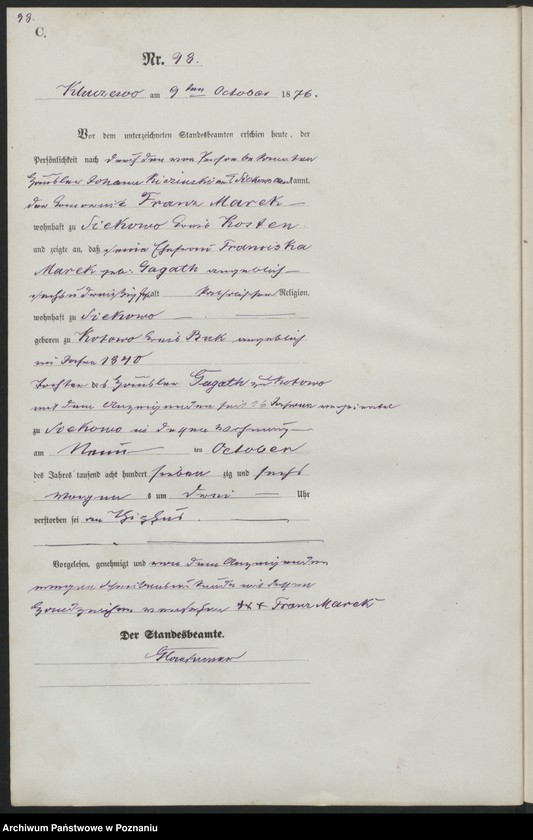 93.
C.
Nr. 93.
Kluczewo am 9ten October 1876.
Vor dem unterzeichneten Standesbeamten erschien heute, der
Persönlichkeit nach durch den von Person bekannten
Häusler Johann zu Siekowo kannt,
der Franz Marek
wohnhaft zu Siekowo Kreis Kosten
und zeigte an, daß seine Ehefrau Franciska
Marek geb. Gagath angeblich
sechs u dreißig J alt katholischer Religion,
wohnhaft zu Siekowo
geboren zu Kotowo Kreis Buk angeblich
im Jahre 1840
Tochter des Häusler Gagath zu Kotowo
mit dem Anzeigenden seit 16 Jahren verheiratet
zu Siekowo in dessen Wohnung
am Neun ten October
des Jahres tausend acht hundert sieben zig und sechs
Morgen s um drei Uhr
verstorben sei am Thiphus.
Vorgelesen, genehmigt und von dem Anzeigenden
wegen Schreibensunkunde mit dessen
Handzeichen versehen +++ Franz Marek
Der Standesbeamte.
Archiwum Państwowe w Poznaniu